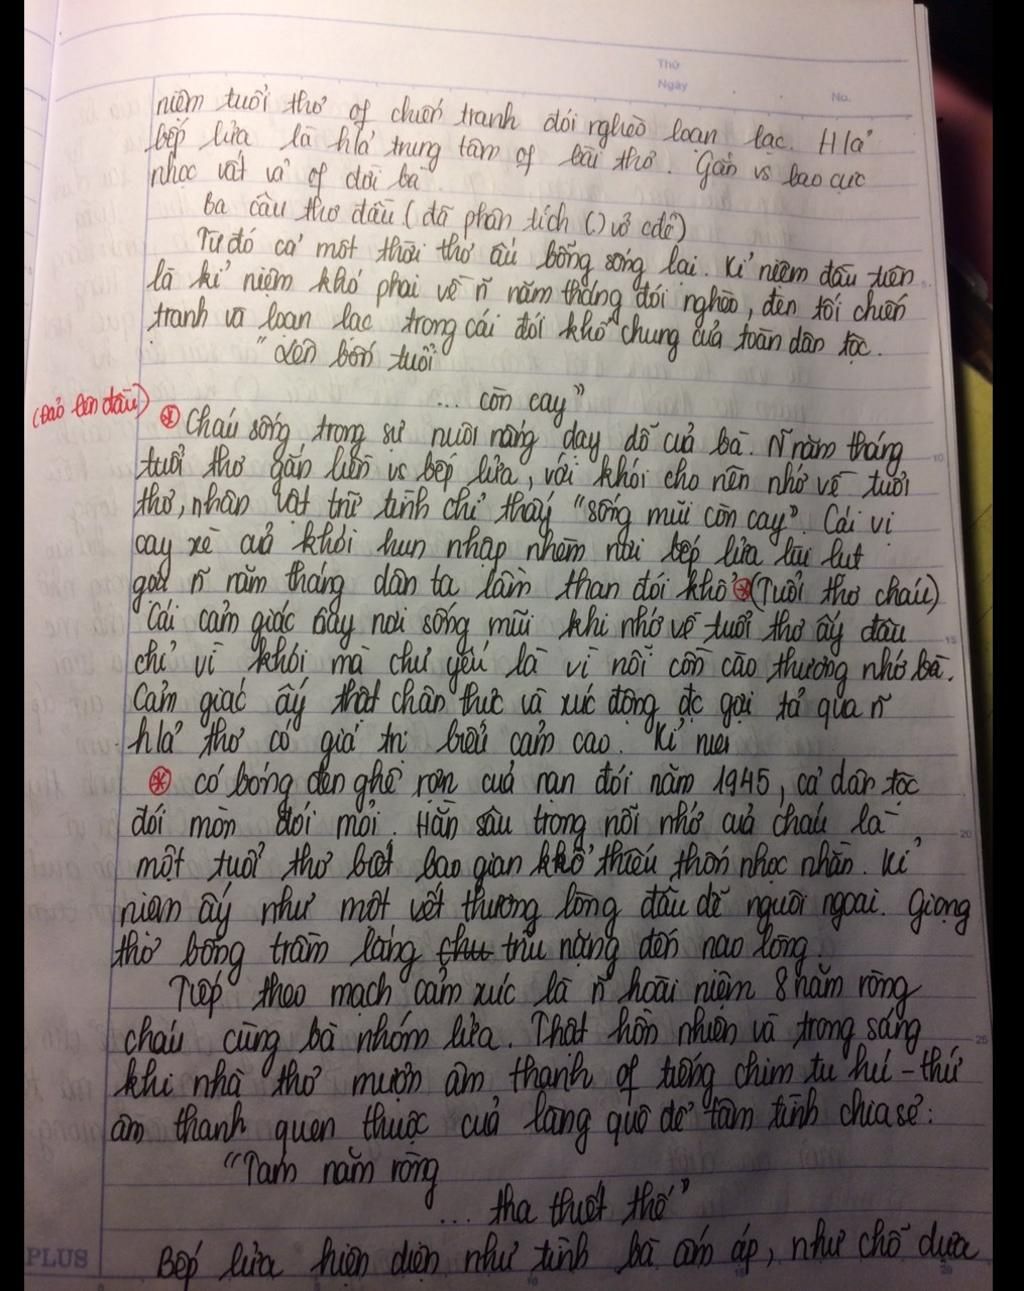 Thứ
Ngày
No.
niệm tuổi thơ of chiến tranh đói nghèo loạn lạc. H/ả
bếp lửa là h/ả trung tâm of bài thơ. Gắn vs bao cực
nhọc vất vả of đời bà
Ba câu thơ đầu (đã phân tích () vở cđề)
Từ đó cả một thời thơ ấu bỗng sống lại. Kỉ niệm đầu tiên
là kỉ niệm khó phai về n~ năm tháng đói nghèo, đen tối chiến
tranh và loạn lạc trong cái đói khổ chung của toàn dân tộc.
"Lên bốn tuổi
... còn cay"
(Đảo lên đầu)
* Cháu sống trong sự nuôi nấng dạy dỗ của bà. N~ năm tháng
tuổi thơ gắn liền vs bếp lửa, với khói cho nên nhớ về tuổi
thơ, nhân vật trữ tình chỉ thấy "sống mũi còn cay". Cái vị
cay xè của khói hun nhập nhèm nơi bếp lửa lùi lụt
gợi n~ năm tháng dân ta lầm than đói khổ * (Tuổi thơ cháu)
Cái cảm giác cay nơi sống mũi khi nhớ về tuổi thơ ấy đâu
chỉ vì khói mà chủ yếu là vì nỗi cồn cào thương nhớ bà.
Cảm giác ấy thật chân thực và xúc động đc gợi tả qua n~
h/ả thơ có giá trị biểu cảm cao. Kỉ niệ
* có bóng đen ghê rợn của nạn đói năm 1945, cả dân tộc
đói mòn đói mỏi. Hằn sâu trong nỗi nhớ của cháu là
một tuổi thơ biết bao gian khổ thiếu thốn nhọc nhằn. Kỉ
niệm ấy như một vết thương lòng đâu dễ nguôi ngoai. Giọng
thơ bỗng trầm lắng trĩu nặng đến nao lòng.
Tiếp theo mạch cảm xúc là n~ hoài niệm 8 năm ròng
cháu cùng bà nhóm lửa. Thật hồn nhiên và trong sáng
khi nhà thơ mượn âm thanh of tiếng chim tu hú - thứ
âm thanh quen thuộc của làng quê để tâm tình chia sẻ:
"Tám năm ròng
... tha thiết thế"
Bếp lửa hiện diện như tình bà ấm áp, như chỗ dựa
PLUS